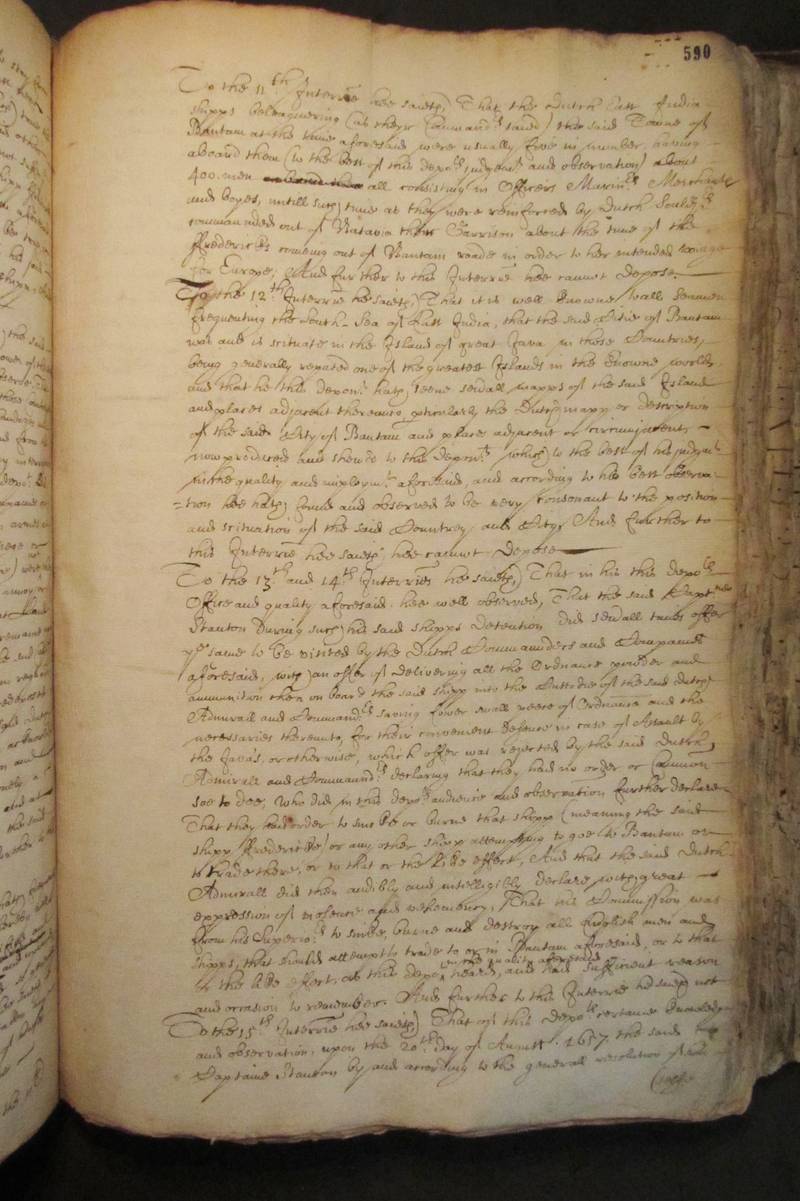 590
To the 11th Interrie hee saieth, That the Dutch East India
shipps beleaguering (as theyr Commandrs said) the said Towne of
Bantam at the time aforesaid were usually five in number, having
aboard them (to the best of this depots judgemt and observation) about
400. men all consisting in Officers Marinrs Merchants
and boyes, untill such time as they were reinforced by Dutch Souldrs
commanded out of Batavia their Garrison about the time of the
Fredericks comeing out of Bantam roade in order to her intended voyage
for Europe, And further to this Interrie hee cannot depose.
To the 12th Interrie he saieth, That it is well knowne to all seamen
frequenting the South-Sea of East India, that the said Citie of Bantam
was and is scituate in the Island of great Java in those Countries,
being generally reputed one of the greatest Islands in the knowne world,
and that he this deponent hath seene severall mapps of the said Island
and places adjacent thereunto, particularly the Dutch mapp or description
of the said City of Bantam and places adjacent or circumjacent,
now produced and shewed to this deponent which to the best of his judgmt
in the quality and imploymt aforesaid, and according to his best observa-
=tion hee hath found and observed to be very consonant to the position
and scituation of the said Countrey and City, And further to
this Interrie hee saieth hee cannot depose
To the 13th and 14th Interries hee saieth, That in his this depots
Office and quality aforesaid hee well observed, That the said Captne
Stanton during such his said shipps detention did severall times offer
ye same to be visited by the Dutch Commaunders and Companie
aforesaid, with an offer of delivering all the Ordnance powder and
ammunition then on board the said shipp into the Custodie of the said dutch
Admirall and Commandrs saving fower small peeces of Ordnance and the
necessaries thereunto, for their convenient defence in case of Assault by
the Java's, or otherwise, which offer was rejected by the said Dutch
Admirall and Commaundrs declaring that they had no order or Common
soe to doe, Who did in this depots audience and observation further declare
That they had order to sincke or burne that shipp (meaning the said
shipp Fredericke) or any other shipp attempting to goe to Bantam or
to trade there, or to that or the like effect, And that the said Dutch
Admirall did then audibly and intelligibly declare with great
expression of violence and vehemency, That his Commission was
from his Superiors to sincke, burne and destroy all English men and
shipps, that should attempt to trade to or in Bantam aforesaid, or to that
in the quality aforesaid
or the like effect, as this depot heard, and had sufficient reason
and occasion to remember. And further to this Interrie hee saieth not
To the 15th Interrie hee saieth, That of this depots certaine knowledge
and observation, upon the 20th day of August 1657 the said
Captaine Stanton by and according to the general resolution of